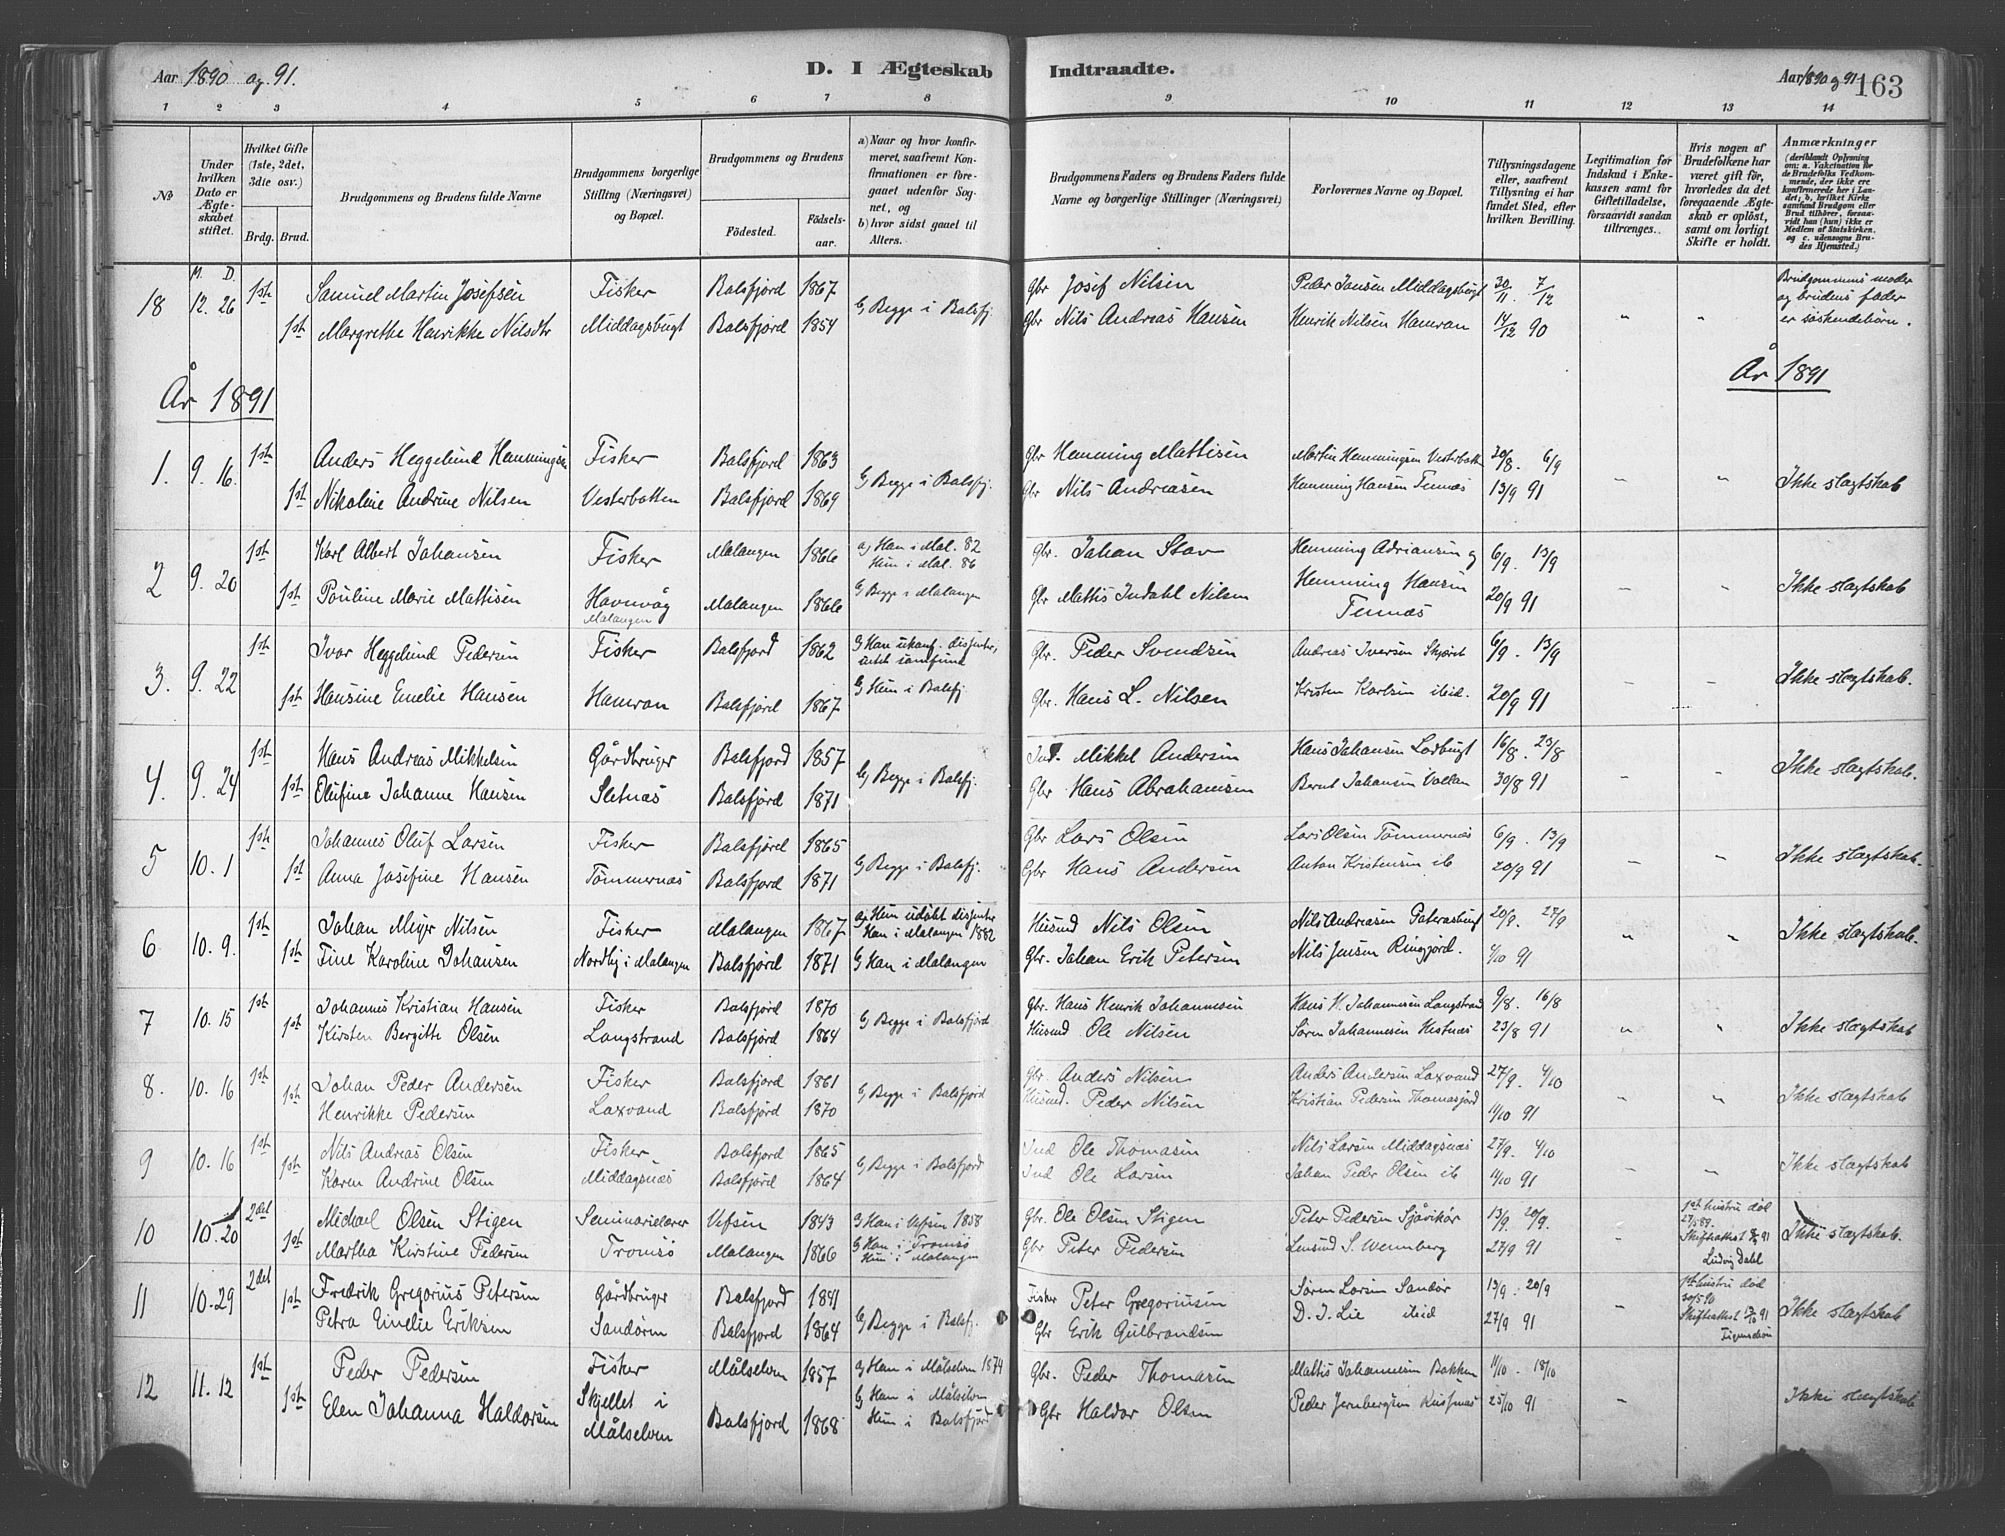 Aar 1890 og 91.
D. I Ægteskab Indtraadte.
Aar 1890 og 91
163
1 2 3 4 5 6 7 8 9 10 11 12 13 14
№
Under hvilken Dato er Ægteskabet stiftet.
Hvilket Gifte (1ste, 2det, 3die osv.)
Brdg. Brud.
Brudgommens og Brudens fulde Navne
Brudgommens borgerlige Stilling (Næringsvei) og Bopæl.
Brudgommens og Brudens
Födested.
Födselsaar.
a) Naar og hvor konfirmeret, saafremt Konfirmationen er foregaaet udenfor Sognet, og
b) hvor sidst gaaet til Alters.
Brudgommens Faders og Brudens Faders fulde Navne og borgerlige Stillinger (Næringsvei)
Forlovernes Navne og Bopæl.
Tillysningsdagene eller, saafremt Tillysning ei har fundet Sted, efter hvilken Bevilling.
Legitimation for Indskud i Enkekassen samt for Giftetilladelse, forsaavidt saadan tiltrænges.
Hvis nogen af Brudefolkene har været gift för, hvorledes da det foregaaende Ægteskab er oplöst, samt om lovligt Skifte er holdt.
Anmærkninger
(deriblandt Oplysning om: a. Vakcination for de Brudefolks Vedkommende, der ikke ere konfirmerede her i Landet; b. hvilket Kirkesamfund Brudgom eller Brud tilhörer, forsaavidt han (hun) ikke er Medlem af Statskirken, og c. udensogns Brudes Hjemsted.)
M. D.
18 12. 26 1st Samuel Martin Josefsen Fisker Balsfjord 1867 b) Begge i Balsfj. Gbr Josef Nilsen Peder Jansen Middagsbugt 30/11. 7/12 Brudgommens moder
1st Margrethe Henrikke Nilsdtr Middagsbugt Balsfjord 1854 Gbr Nils Andreas Hansen Henrik Nilsen Hamran 14/12 90 " " og brudens fader
er söskendebörn.
År 1891 År 1891
1. 9. 16. 1st Anders Heggelund Hemmingsen Fisker Balsfjord 1863 b) Begge i Balsfj. Gbr Hemming Mattisen Martin Hemmingsen Vesterbotten 30/8. 6/9
1st Nikoline Andrine Nilsen Vesterbotten Balsfjord 1869 Gbr Nils Andreasen Hemming Hansen Tennæs 13/9 91 " " Ikke slægtskab
2 9. 20 1st Karl Albert Johansen Fisker Malangen 1866 a) Han i Mal. 82 Gbr. Johan Stav Hemming Adriansen og 6/9. 13/9
Hun i Mal. 86
1st Pauline Marie Mattisen Havnvåg Malangen 1866 b) Begge i Malangen Gbr Mattis Indahl Nilsen Hemming Hansen 20/9 91 " " Ikke slægtskab
Malangen Tennæs
3. 9. 22 1st Ivar Heggelund Pedersen Fisker Balsfjord 1862 b) Han ukonf. dissenter, Gbr. Peder Svendsen Andreas Iversen Skjæret 6/9. 13/9
udet samfund
1st Hansine Emelie Hansen Hamran Balsfjord 1867 b) Hun i Balsfj. Gbr. Hans L. Nilsen Kristen Karlsen ibid. 20/9 91 " " Ikke slægtskab.
4. 9. 24 1st Hans Andreas Mikkelsen Gårdbruger Balsfjord 1857 b) Begge i Balsfj. Ind. Mikkel Andersen Hans Johansen Lodbugt 16/8. 23/8
1st Olufine Johanne Hansen Sletnæs Balsfjord 1871 Gbr Hans Abrahamsen Bernt Johansen Vollan 30/8 91 " " Ikke slægtskab.
5 10. 1 1st Johannes Oluf Larsen Fisker Balsfjord 1865 b) Begge i Balsfj. Gbr Lars Olsen Lars Olsen Tömmernæs 6/9. 13/9
1st Anna Josefine Hansen Tömmernæs Balsfjord 1871 Gbr Hans Andersen Anton Kristensen ib 20/9 91 " " Ikke slægtskab.
6 10. 9. 1st Johan Meyer Nilsen Fisker Malangen 1867 a) Hun udöbt dissenter Husmd Nils Olsen Nils Andreasen 20/9. 27/9
Han i Malangen 1882
1st Tine Karoline Johansen Nordby i Malangen Balsfjord 1871 b) Han i Malangen Gbr. Johan Erik Petersen Nils Jensen Ringfjord. 4/10 91 " " Ikke slægtskab.
7 10. 15 1st Johannes Kristian Hansen Fisker Balsfjord 1870 b) Begge i Balsfjord Gbr. Hans Henrik Johannesen Hans H. Johannesen Langstrand 9/8. 16/8
1st Kirsten Bergitte Olsen Langstrand Balsfjord 1864 Husmd Ole Nilsen Sören Johannesen Hestnæs 23/8 91 " " Ikke slægtskab
8. 10. 16 1st Johan Peder Andersen Fisker Balsfjord 1861 b) Begge i Balsfjord Gbr. Anders Nilsen Anders Andersen Laxvand 27/9. 4/10
1st Henrikke Pedersen Laxvand Balsfjord 1870 Husmd. Peder Nilsen Kristian Pedersen Thomasjord 11/10 91 " " Ikke slægtskab
9 10. 16 1st Nils Andreas Olsen Fisker Balsfjord 1865 b) Begge i Balsfjord Ind Ole Thomasen Nils Larsen Middagsnæs 27/9. 4/10
1st Karen Andrine Olsen Middagsnæs Balsfjord 1864 Ind Ole Larsen Johan Peder Olsen ib 11/10 91 " " Ikke slægtskab
10 10. 20 2det Michael Olsen Stigen Seminarielærer Vefsen 1843 a) Han i Vefsen 1858 Gbr. Ole Olsen Stigen Peter Pedersen Sjåvikör 13/9. 20/9. 1st hustru död 27/5 89.
1st Martha Kirstine Pedersen Tromsö Malangen 1866 b) Han i Tromsö Gbr Peter Pedersen Lensmd S. Wennberg 27/9 91 " Skifteattest 91 Ikke slægtskab.
Hun i Malangen Ludvig Dahl
11 10. 29 2det Fredrik Gregorius Petersen Gårdbruger Balsfjord 1841 b) Begge i Balsfj. Fisker Peter Gregoriusen Sören Larsen Sandör 13/9. 20/9 1st hustru död 30/5 90
1st Petra Emelie Eriksen Sandören Balsfjord 1864 Gbr Erik Gulbrandsen D. J. Lie ibid 27/9 91 " Skifteattest 91 Ikke slægtskab
12 11. 12 1st Peder Pedersen Fisker Målselven 1857 a) Han i Målselven 1874 Gbr. Peder Thomasen Mattis Johannesen Bakken 11/10. 18/10
1st Elen Johanna Haldorsen Skjellet i Målselven Balsfjord 1868 b) Han i Målselven Gbr Haldor Olsen Peder Jernbergsen 25/10 91 " Ikke slægtskab
Hun i Balsfjord